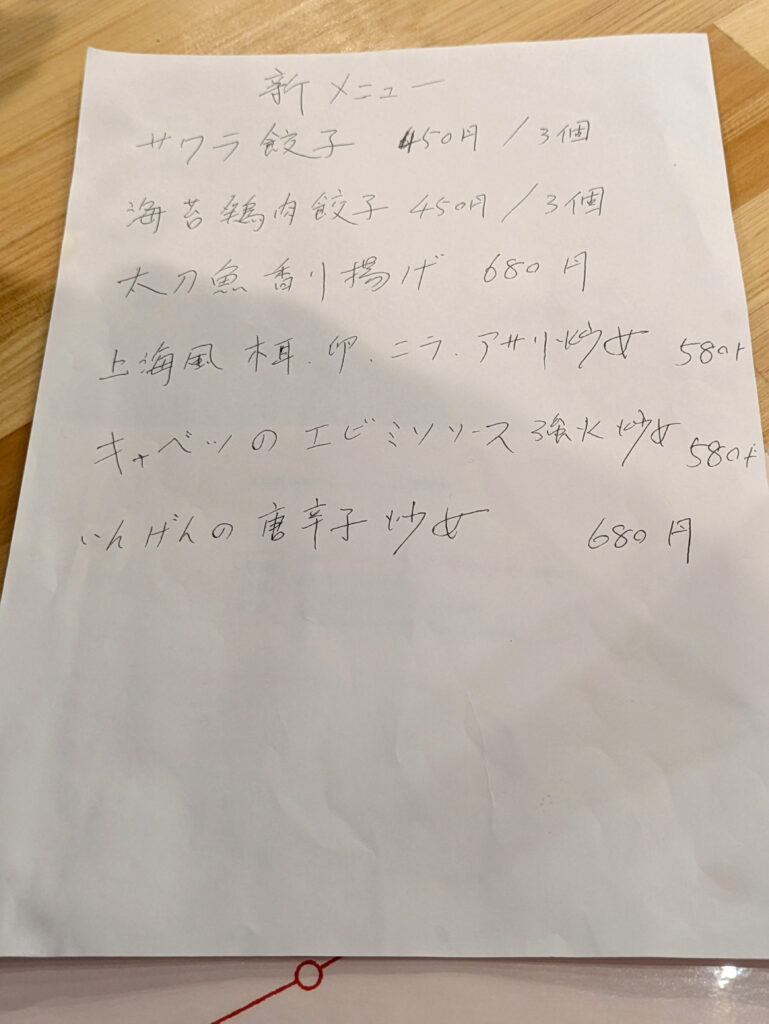 新メニュー
サワラ餃子 450円/3個
海苔鶏肉餃子 450円/3個
太刀魚香り揚げ 680円
上海風 木耳.卵.ニラ.アサリ炒め 580
キャベツのエビミソソース強火炒め 580
いんげんの唐辛子炒め 680円